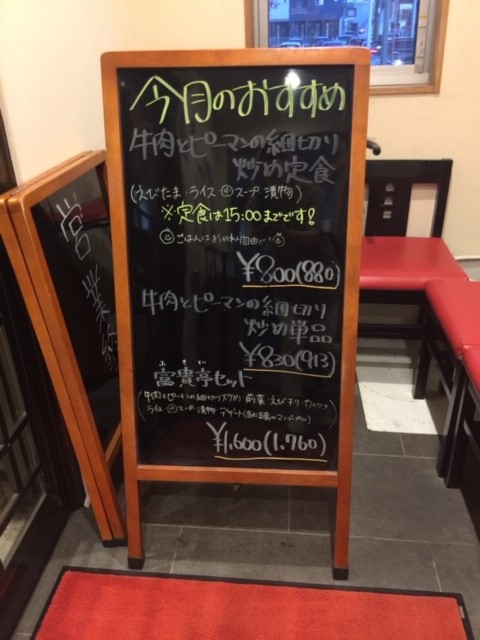 今月のおすすめ
牛肉とピーマンの細切り
炒め定食
(えびたま・ライス・小スープ 漬物)
※定食は15:00までです!
ごはんはおかわり自由
¥800(880)
牛肉とピーマンの細切り
炒め単品
¥830(913)
富貴亭セット
(牛肉とピーマンの細切り炒め 前菜・えびチリ・
ライス・小スープ 漬物 デザート
¥1,600(1,760)
営業